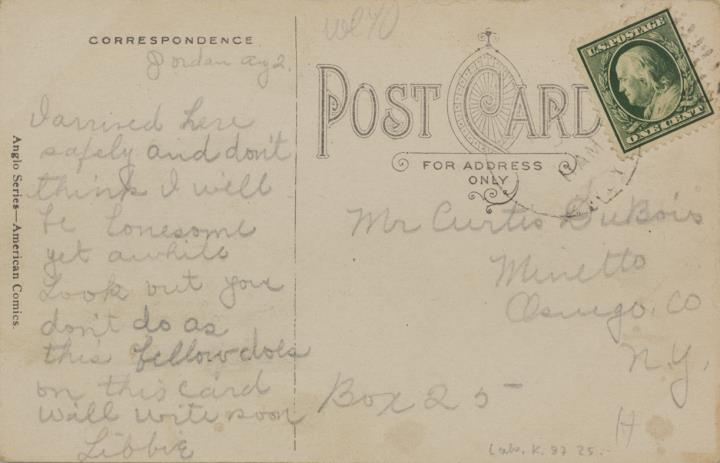 CORRESPONDENCE
Jordan Aug 2.
I arrived here
safely and don't
think I will
be lonesome
yet awhile
Look out you
don't do as
this fellow does
on this card
will write soon
Libbie
Anglo Series—American Comics.
POST CARD
FOR ADDRESS
ONLY
U.S. POSTAGE
ONE CENT
Mr Curtis DuBois
Minetto
Oswego, Co
N.Y.
Box 25
H